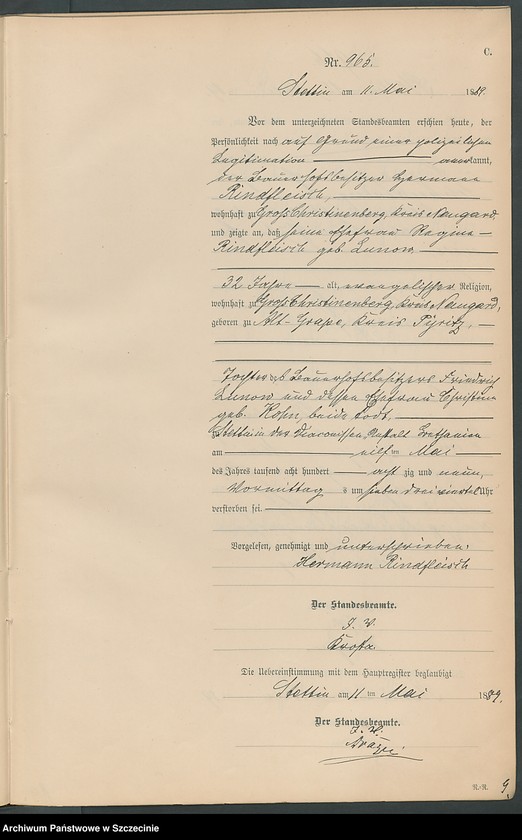 C.
Nr. 965.
Stettin am 11. Mai 1889.
Vor dem unterzeichneten Standesbeamten erschien heute, der
Persönlichkeit nach auf Grund einer polizeilichen
Legitimation anerkannt,
der Bauerhofsbesitzer Hermann
Rindfleisch,
wohnhaft zu Groß Christinenberg, Kreis Naugard
und zeigte an, daß seine Ehefrau Regine
Rindfleisch geb. Lunow
32 Jahre alt, evangelischer Religion,
wohnhaft zu Groß Christinenberg, Kreis Naugard,
geboren zu Alt-Grape, Kreis Pyritz,
Tochter des Bauerhofsbesitzers Friedrich
Lunow und dessen Ehefrau Christine
geb. Kohn, beide todt.
zu Stettin in der Diaconissen Anstalt Bethanien
am eilf ten Mai
des Jahres tausend acht hundert acht zig und neun,
Vormittag s um sieben dreiviertel Uhr
verstorben sei.
Vorgelesen, genehmigt und unterschrieben:
Hermann Rindfleisch
Der Standesbeamte.
I. V.
Die Uebereinstimmung mit dem Hauptregister beglaubigt
Stettin am 11 ten Mai 1889.
Der Standesbeamte.
I. V.
R.-R.
9.
Archiwum Państwowe w Szczecinie